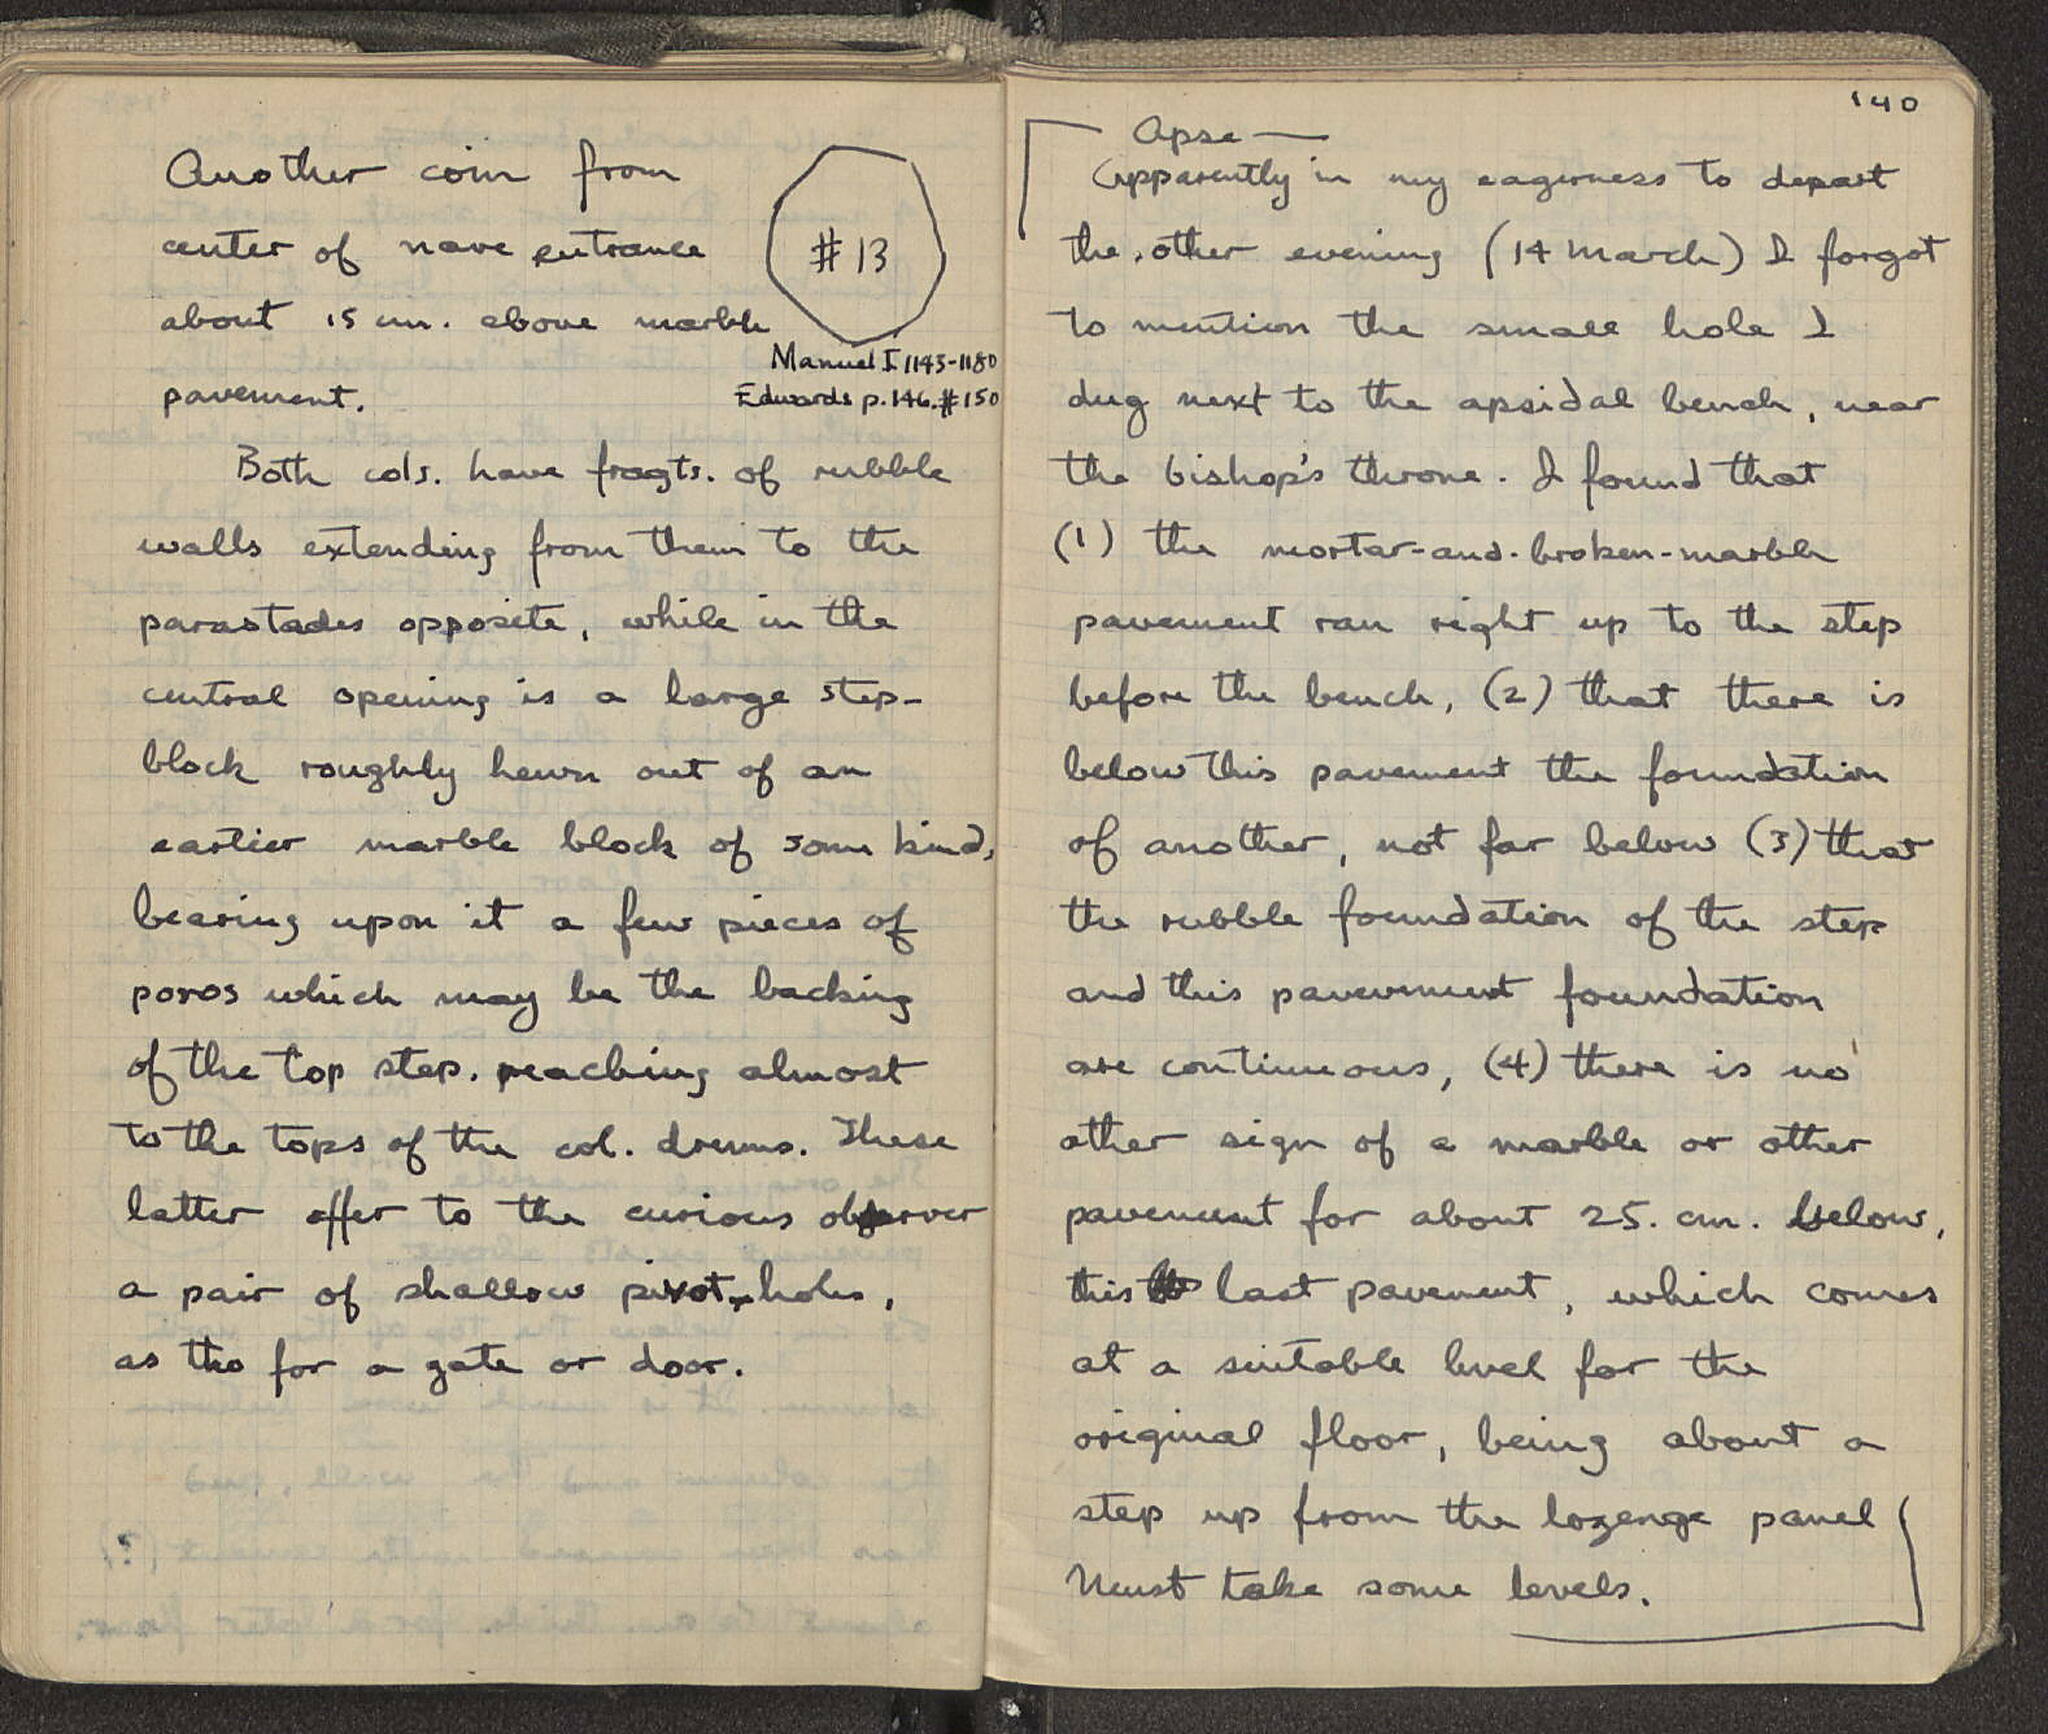 Another coin from
center of nave entrance
about 15 cm. above marble
pavement.
#13
Manuel I 1143-1180
Edwards p.146.#150
Both cols. have fragts. of rubble
walls extending from them to the
parastades opposite, while in the
central opening is a large step-
block roughly hewn out of an
earlier marble block of some kind,
bearing upon it a few pieces of
poros which may be the backing
of the top step. reaching almost
to the tops of the col. drums. These
latter offer to the curious observer
a pair of shallow pivot-holes,
as tho for a gate or door.
140
Apse —
Apparently in my eagerness to depart
the other evening (14 March) I forgot
to mention the small hole I
dug next to the apsidal bench, near
the bishop's throne. I found that
(1) the mortar-and-broken-marble
pavement ran right up to the step
before the bench, (2) that there is
below this pavement the foundation
of another, not far below (3) that
the rubble foundation of the step
and this pavement foundation
are continuous, (4) there is no
other sign of a marble or other
pavement for about 25. cm. below,
this last pavement, which comes
at a suitable level for the
original floor, being about a
step up from the lozenge panel
Must take some levels.